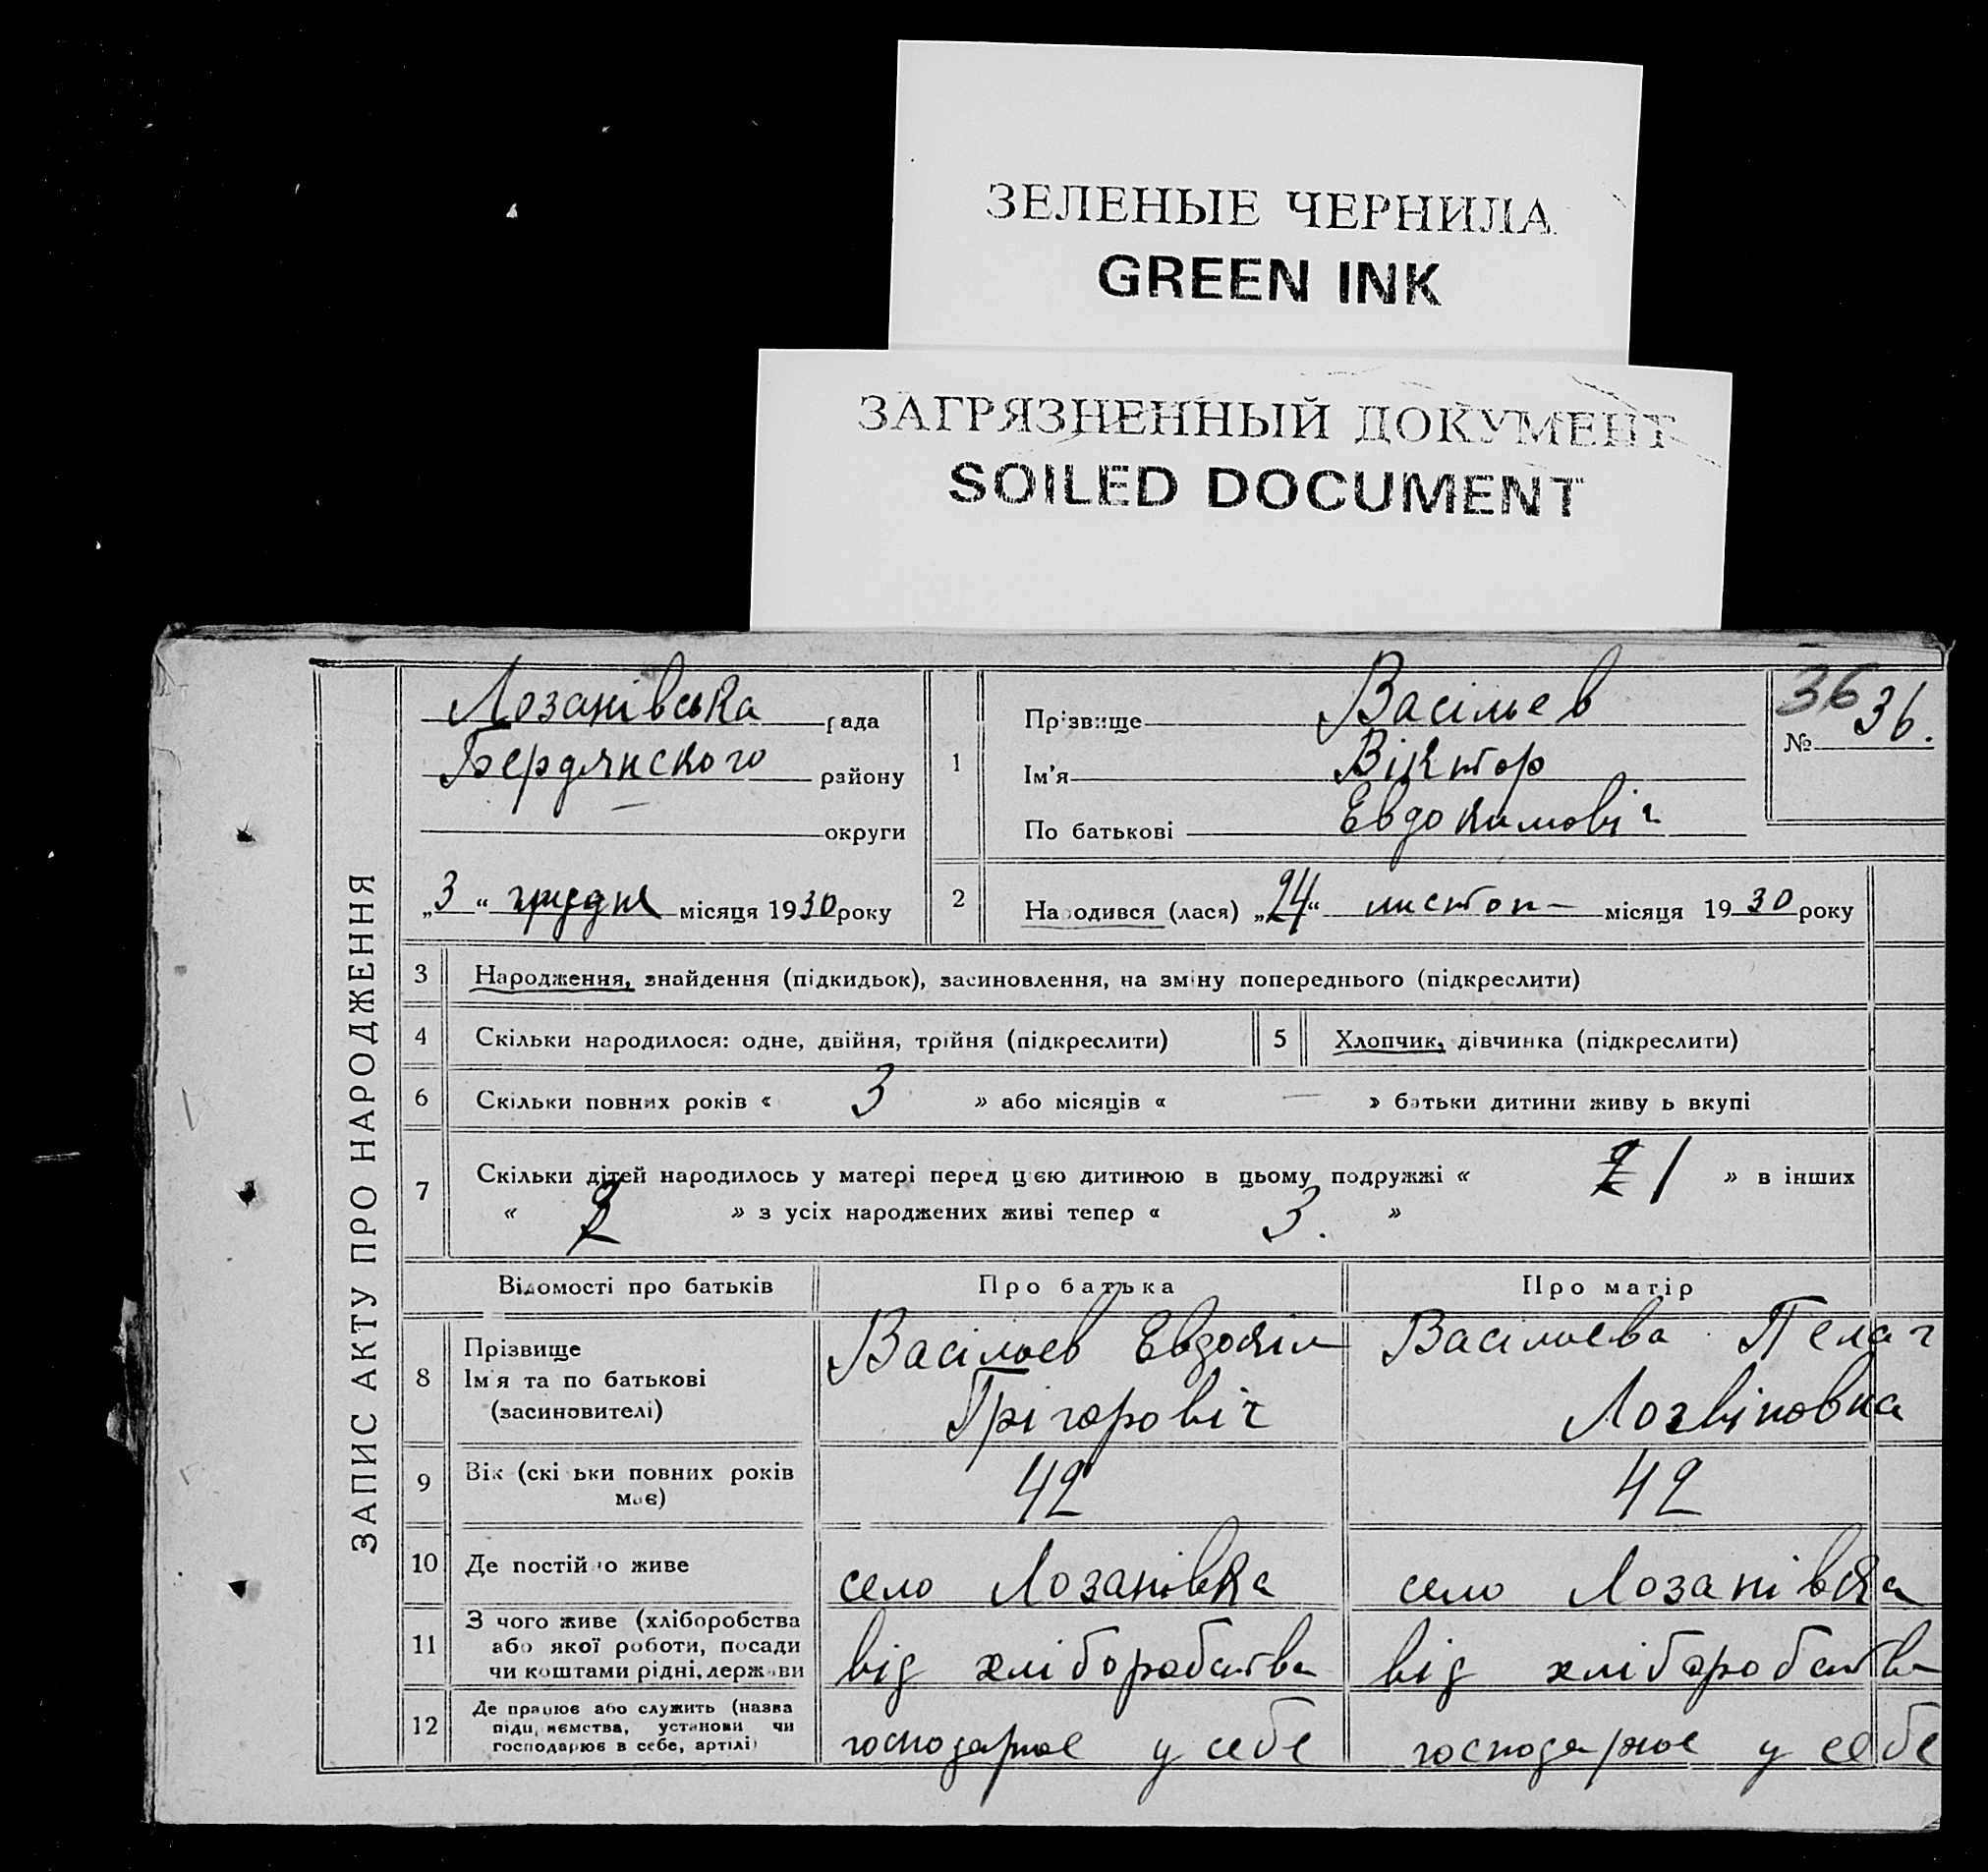 ЗЕЛЕНЫЕ ЧЕРНИЛА
GREEN INK
ЗАГРЯЗНЕННЫЙ ДОКУМЕНТ
SOILED DOCUMENT
ЗАПИС АКТУ ПРО НАРОДЖЕННЯ
Лозанівська рада
Бердянского району
— округи
„3“ грудня місяця 1930 року
1
Прізвище Васільев
Ім'я Віктор
По батькові Евдокимовіч
36
№ 36.
2 Народився (лася) „24“ листоп— місяця 1930 року
3 Народження, знайдення (підкидьок), засиновлення, на зміну попереднього (підкреслити)
4 Скільки народилося: одне, двійня, трійня (підкреслити)
5 Хлопчик, дівчинка (підкреслити)
6 Скільки повних років « 3 » або місяців « — » батьки дитини живуть вкупі
7 Скільки дітей народилось у матері перед цією дитиною в цьому подружжі « 2 1 » в інших
« 2 » з усіх народжених живі тепер « 3. »
Відомості про батьків Про батька Про матір
8 Прізвище
Ім'я та по батькові
(засиновителі)
Васільев Евдокім
Грігоровіч
Васільева Пелаг
Логвіновна
9 Вік (скільки повних років
має)
42 42
10 Де постійно живе село Лозанівка село Лозанівка
11 З чого живе (хліборобства
або якої роботи, посади
чи коштами рідні, держави
від хліборобства від хліборобства
12 Де працює або служить (назва
підприємства, установи чи
господарює в себе, артілі)
господарює у себе господарює у себе